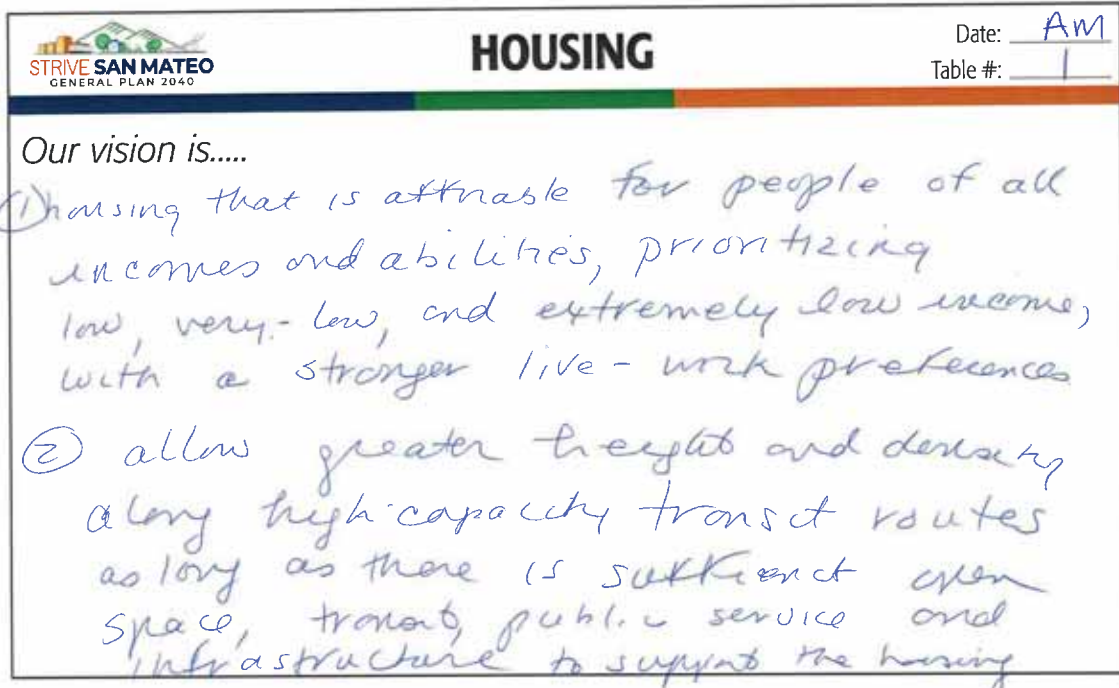 STRIVE SAN MATEO
GENERAL PLAN 2040
HOUSING
Date: AM
Table #: 1
Our vision is.....
① housing that is attnable for people of all
incomes and abilities, prioritizing
low, very-low, and extremely low income,
with a stronger live-work preferences
② allow greater height and density
along high-capacity transit routes
as long as there is sufficient open
space, transit, public service and
infrastructure to support the housing